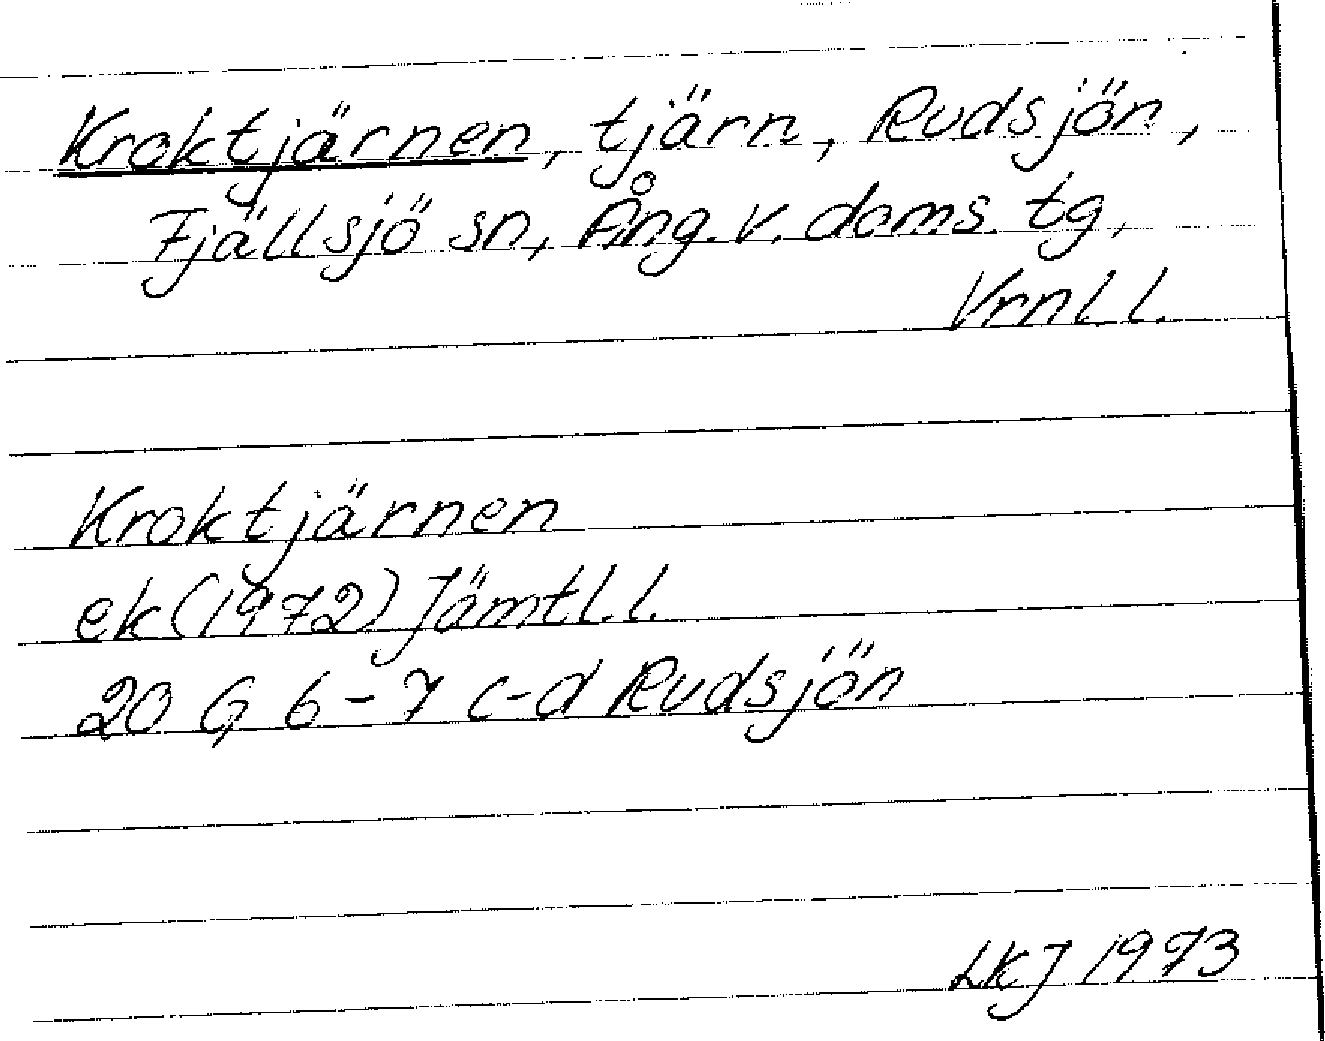 Kroktjärnen, tjärn, Rudsjön,
Fjällsjö sn, Ång. v. doms. tg,
Vrnl l.
Kroktjärnen
ek (1972) Jämtl. l.
20 G 6-7 c-d Rudsjön
LKJ 1973